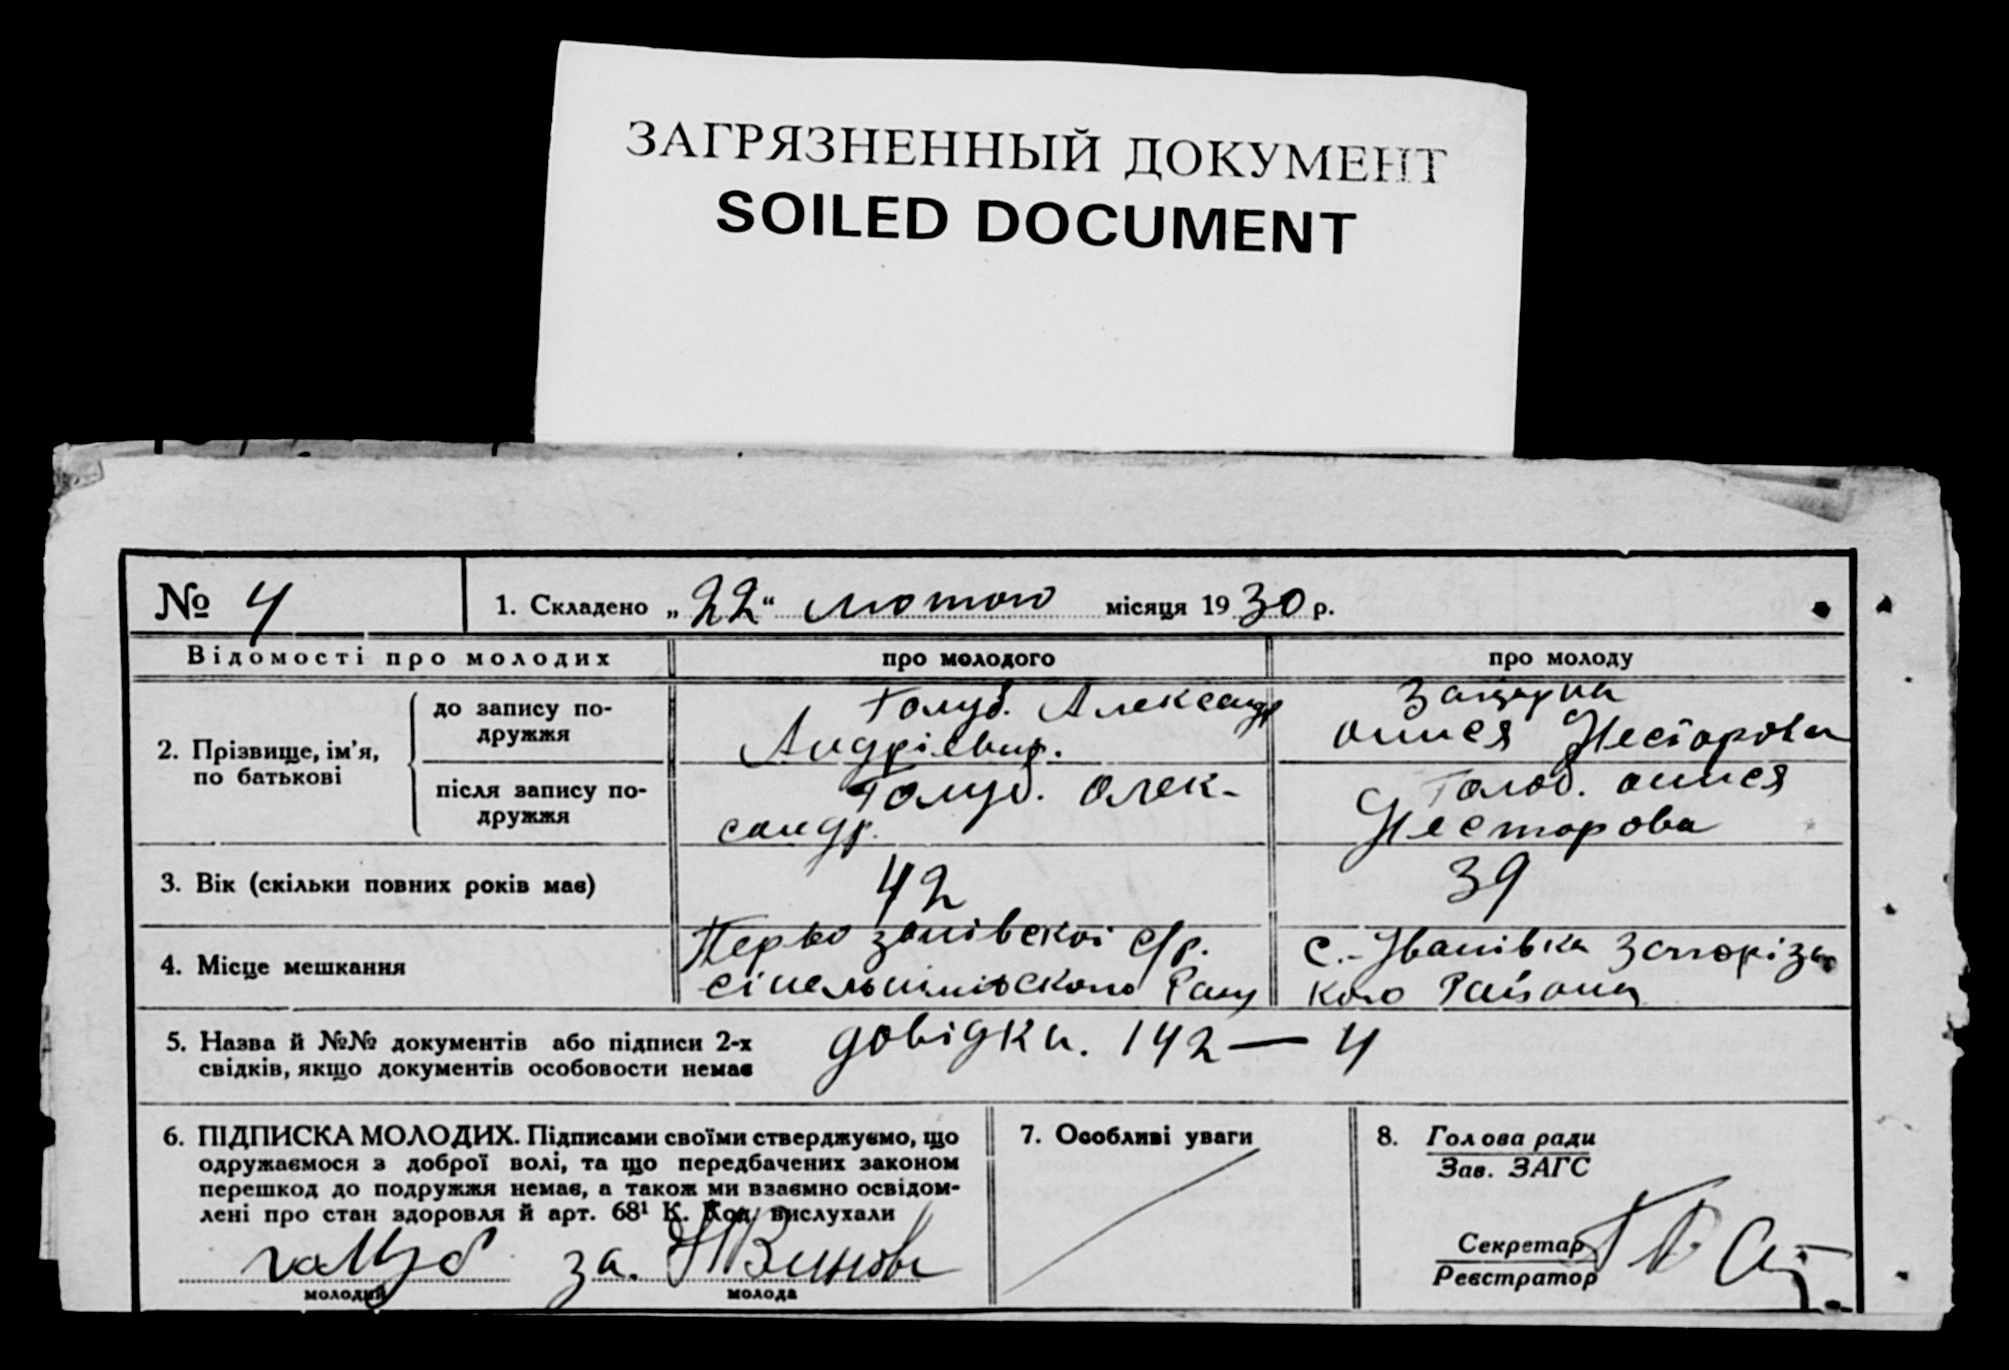 ЗАГРЯЗНЕННЫЙ ДОКУМЕНТ
SOILED DOCUMENT
№ 4
1. Складено „22“ лютого місяця 1930 р.
Відомості про молодих
про молодого
про молоду
2. Прізвище, ім’я, по батькові
до запису подружжя
Голуб. Александр
Андрієвич.
Нестарова
після запису по-
дружжя
Голуб. Олек-
сандр.
Голоб.
Несторова
3. Вік (скільки повних років має)
42
39
4. Місце мешкання
с/р.
с.-Іванівка Запоріз
кого Району
5. Назва й №№ документів або підписи 2-х
свідків, якщо документів особовости немає
довідки. 142 — 4
6. ПІДПИСКА МОЛОДИХ. Підписами своїми стверджуємо, що
одружаємося з доброї волі, та що передбачених законом
перешкод до подружжя немає, а також ми взаємно освідом-
лені про стан здоровля й арт. 68¹ К. Код. вислухали
голуб за.
молодий
молода
7. Особливі уваги
8. Голова ради
Зав. ЗАГС
Секретар
Реєстратор